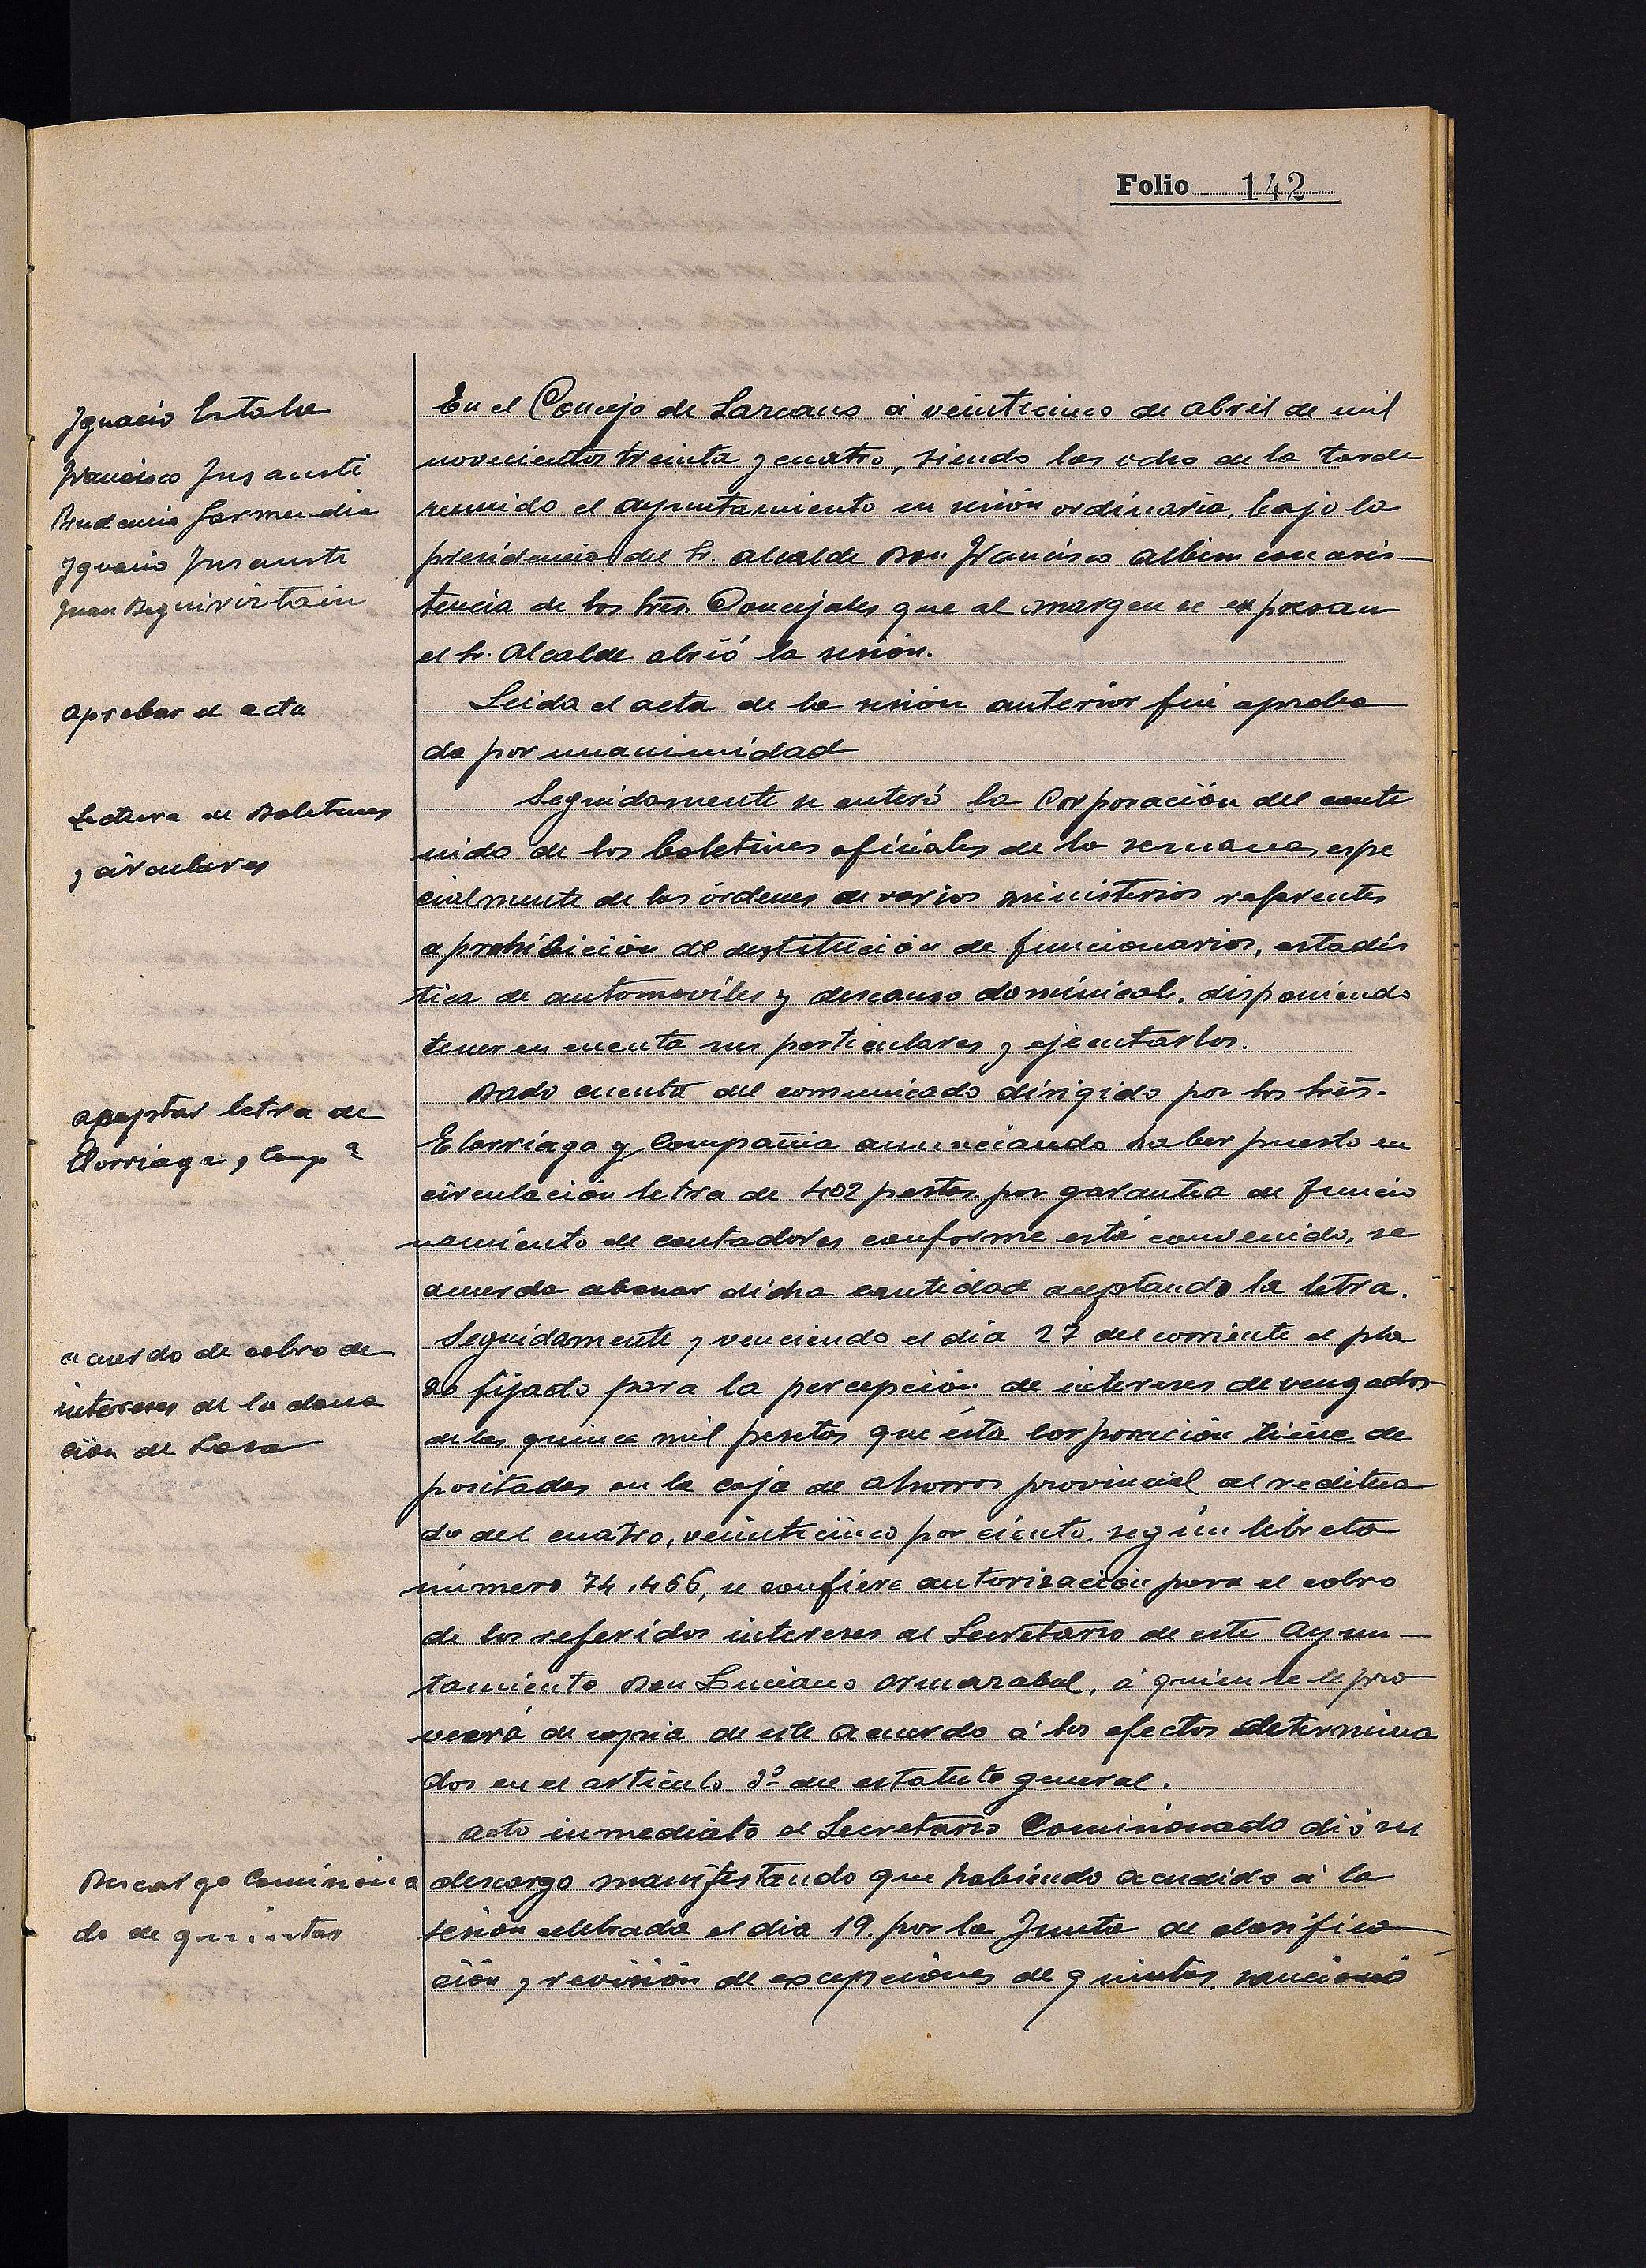 Folio 142
Ignacio Estala
Francisco Insausti
Prudencio Garmendia
Ignacio Insausti
Juan Beguiristain
En el Concejo de Lazcano á veinticinco de abril de mil
novecientos treinta y cuatro, siendo las ocho de la tarde
reunido el ayuntamiento en sesión ordinaria, bajo la
presidencia del Sr. alcalde Don Francisco Albisu con asis-
tencia de los Sres. Concejales que al margen se expresan
el Sr. Alcalde abrió la sesión.
aprobar el acta
Leida el acta de la sesión anterior fué aproba
da por unanimidad
Lectura de Boletines
y circulares
Seguidamente se enteró la Corporación del conte
nido de los boletines oficiales de la semana, espe
cialmente de las órdenes de varios ministerios referentes
a prohibición de destitución de funcionarios, estadís
tica de automoviles y descanso dominical, disponiendo
tener en cuenta sus particulares y ejecutarlos.
aceptar letra de
Elorriaga y Compª
Dado cuenta del comunicado dirigido por los Sres.
Elorriaga y Compañia anunciando haber puesto en
circulación letra de 402 pesetas por garantia de funcio
namiento de contadores conforme está convenido, se
acuerda abonar dicha cantidad aceptando la letra.
acuerdo de cobro de
intereses de la dona
ción de Lasa
Seguidamente y venciendo el dia 27 del corriente el pla
zo fijado para la percepción de intereses devengados
de las quince mil pesetas que esta corporación tiene de
positadas en la caja de ahorros provincial al reditua
do del cuatro, veinticinco por ciento, según libreta
número 74.456, se confiere autorización para el cobro
de los referidos intereses al Secretario de este Ayun-
tamiento Don Luciano Ormazabal, á quien se le pro
veerá de copia de este acuerdo á los efectos determina
dos en el articulo 3º del estatuto general.
Descargo Comisiona
do de quintas
acto inmediato el Secretario Comisionado dió su
descargo manifestando que habiendo acudido á la
sesión celebrada el dia 19. por la Junta de clasifica
ción y revisión de excepciones de quintas, sancionó